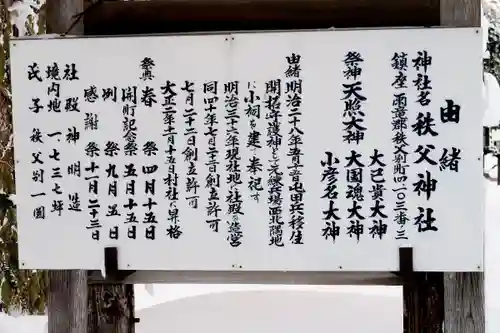 由緒
神社名 秩父神社
鎮座 雨竜郡秩父別町一〇三番二
祭神 天照大神 大己貴大神
大国魂大神
小彦名大神
由緒 明治二十八年
屯田兵移住
開拓守護神として元練兵場西北隅地
に小祠を建て奉祀す
明治三十三年現社地に社殿を造営
同四十年七月二十二日創立許可
七月二十二日創立許可
大正二年十一月十五日村社に昇格
祭典 春祭 四月十五日
開町記念祭 五月十五日
例祭 九月五日
感謝祭 十一月二十三日
社殿 神明造
境内地 一、七三七坪
氏子 秩父別一圓